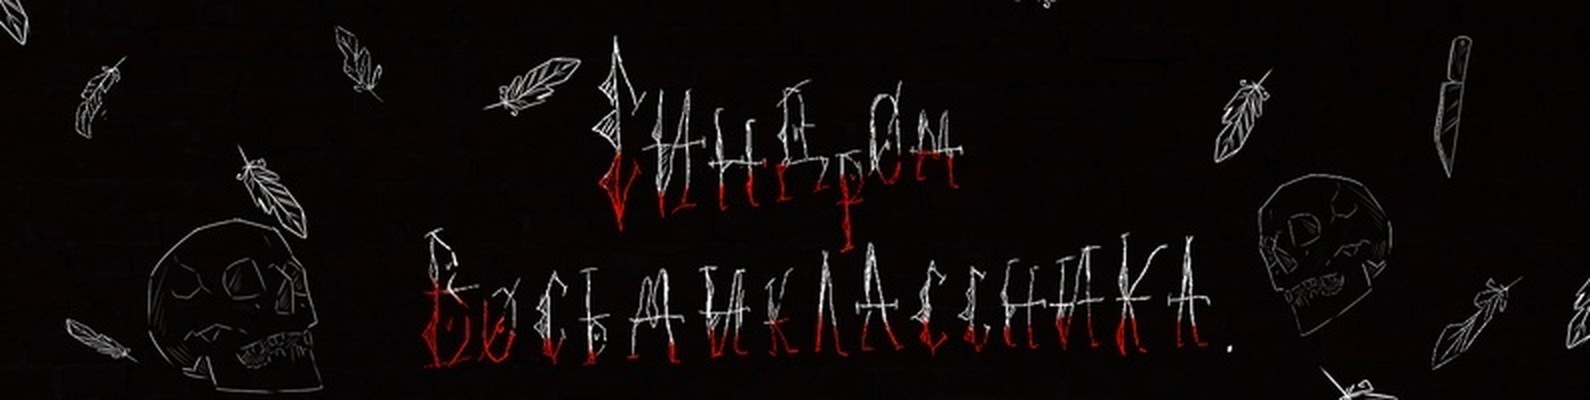 Синдром
Восьмиклассника.